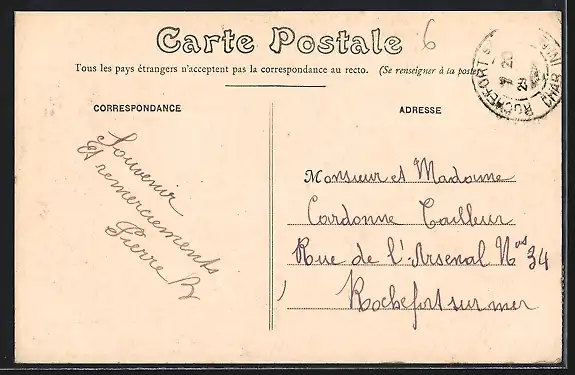 Carte Postale 6
Tous les pays étrangers n'acceptent pas la correspondance au recto. (Se renseigner à la poste
CORRESPONDANCE
Souvenir
Et remerciements
Pierre B
ADRESSE
Monsieur et Madame
Cardonne Tailleur
Rue de l'Arsenal Nos 34
Rochefort sur mer
ROCHEFORT S